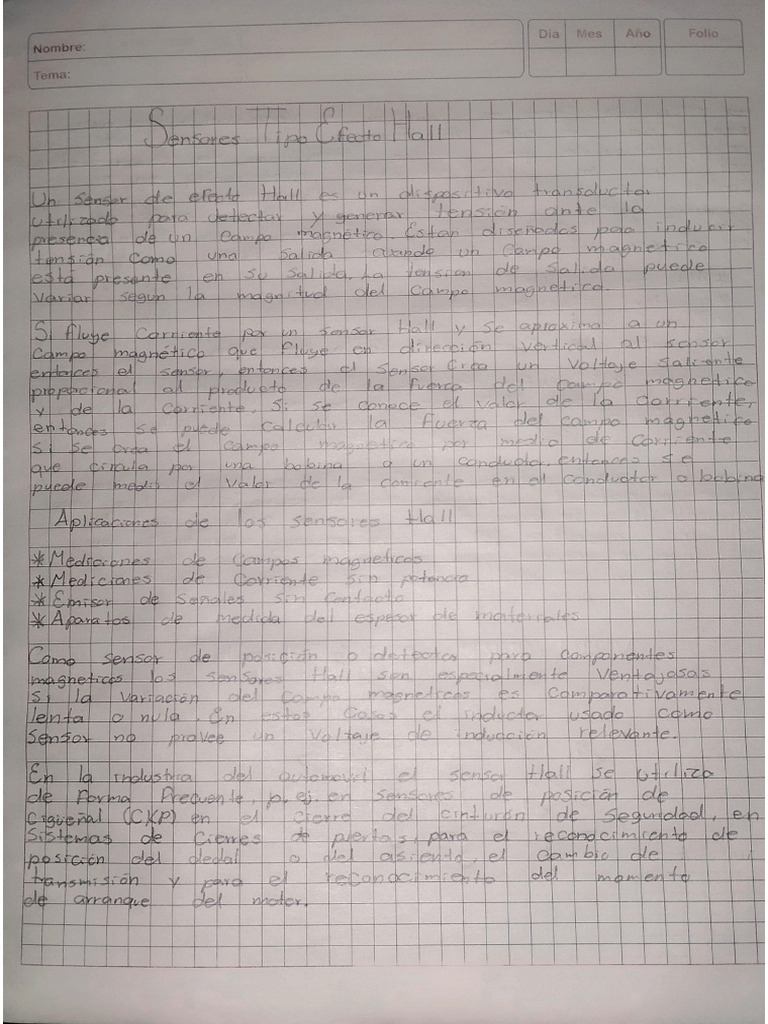 Nombre:
Dia Mes Año Folio
Tema:
Sensores Tipo Efecto Hall
Un sensor de efecto Hall es un dispositivo transductor
utilizado para detectar y generar tensión ante la
presencia de un campo magnético Estan diseñados para inducir
tensión como una salida cuando un campo magnetico
está presente en su salida. La tension de salida puede
variar segun la magnitud del campo magnetico.
Si fluye corriente por un sensor Hall y se aproxima a un
campo magnético que fluye en dirección vertical al sensor
entonces el sensor, entonces el sensor crea un voltaje saliente
proporcional al producto de la fuerza del campo magnetico
y de la corriente. Si se conoce el valor de la corriente,
entonces se puede calcular la fuerza del campo magnetico
si se crea el campo magnetico por medio de corriente
que circula por una bobina o un conducto, entonces se
puede medir el valor de la corriente en el conductor o bobina
Aplicaciones de los sensores Hall
*Mediciones de campos magneticos
*Mediciones de corriente sin potencia
*Emisor de señales sin contacto
*Aparatos de medida del espesor de materiales
Como sensor de posición o detector para componentes
magneticos los sensores Hall son especialmente ventajosos
si la variación del campo magneticos es comparativamente
lenta o nula. En estos casos el inductor usado como
sensor no provee un voltaje de inducción relevante.
En la industria del automovil el sensor Hall se utiliza
de forma frecuente, p. ej. en sensores de posición de
Cigüeñal (CKP) en el cierre del cinturón de seguridad, en
sistemas de cierres de puertas, para el reconocimiento de
posición del dedal o del asiento, el cambio de
transmisión y para el reconocimiento del momento
de arranque del motor.